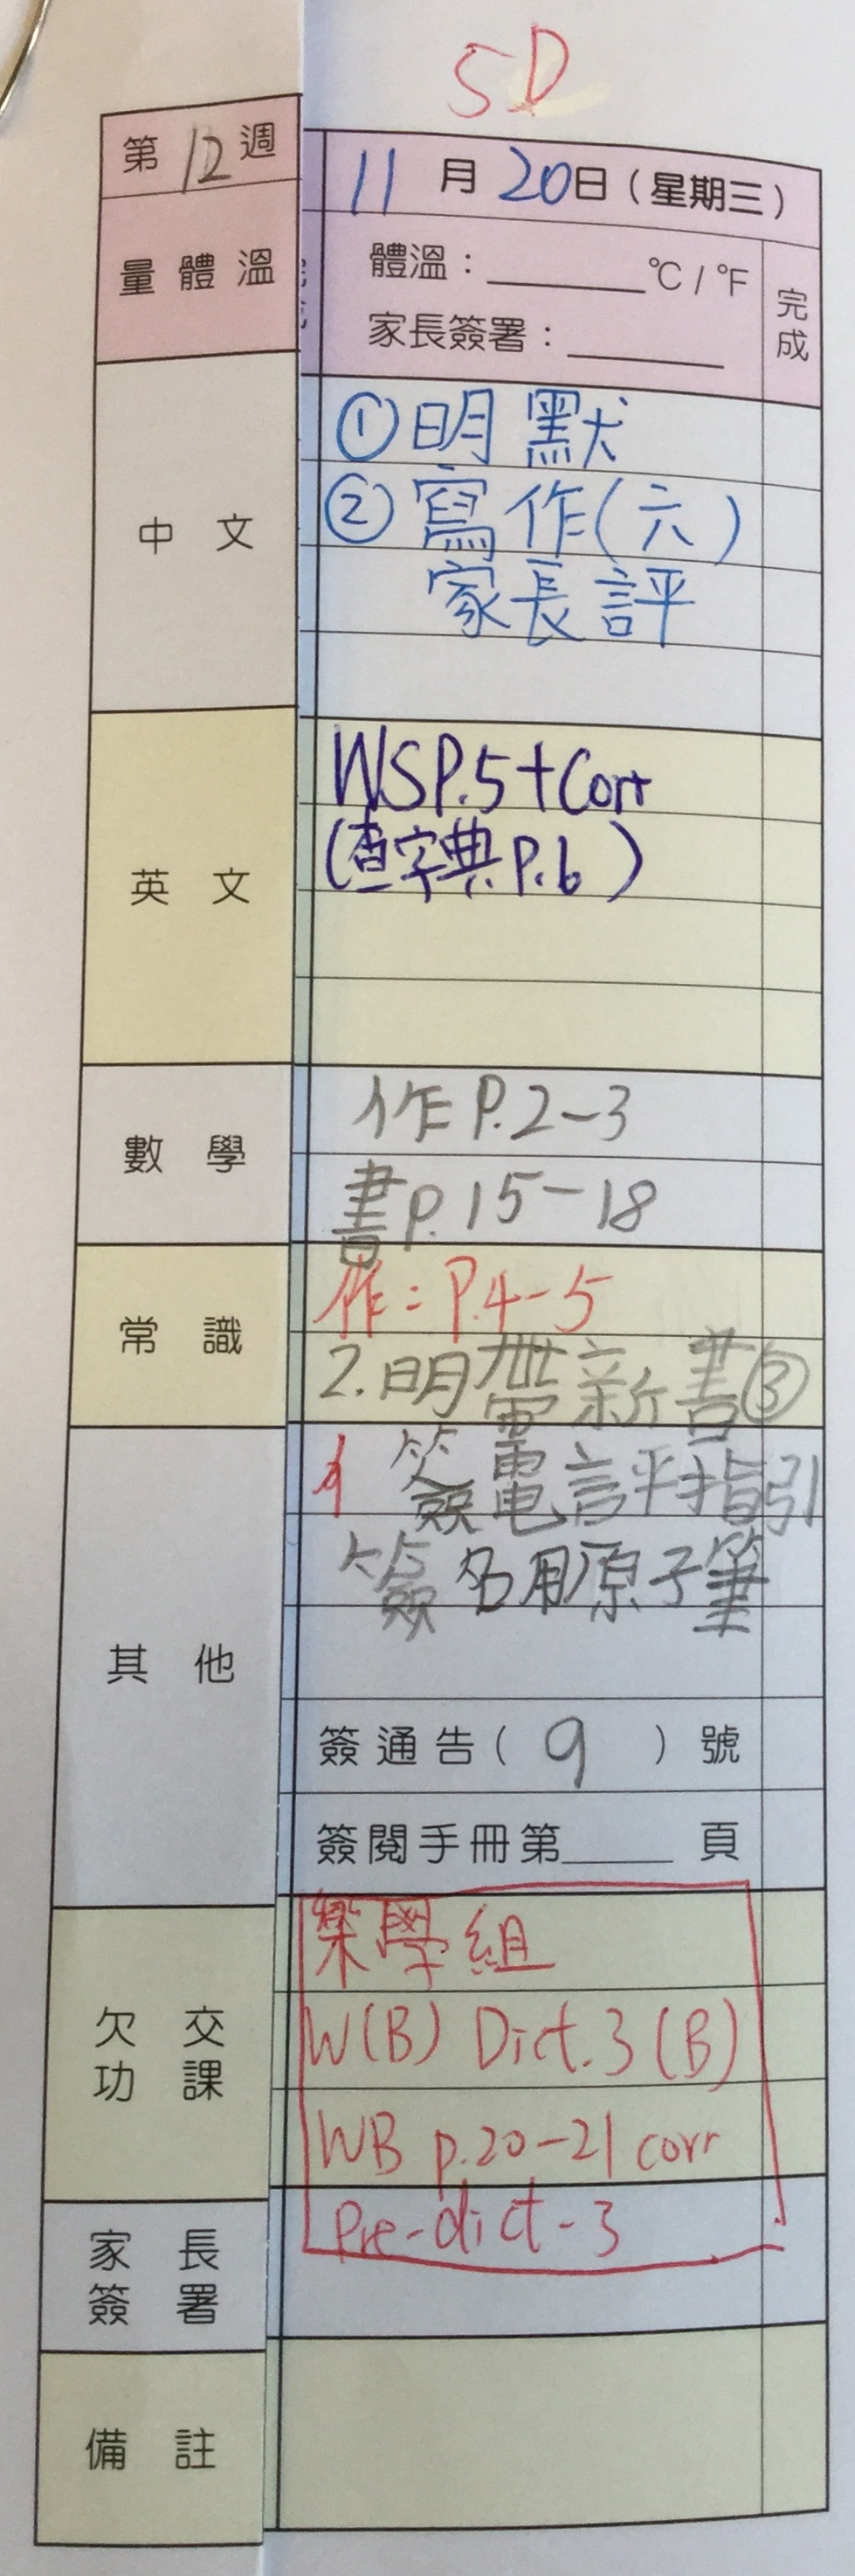 5D
第12週
11月20日(星期三)
量體溫
體溫：______°C / °F
家長簽署：______
完成
中文
①明默
②寫作(六)
家長評
英文
WSP.5+Corr
(查字典P.6)
數學
作P.2-3
書P.15-18
常識
作：P.4-5
2.明帶新書③
其他
簽電評指引
簽名用原子筆
簽通告( 9 )號
簽閱手冊第____頁
欠交功課
樂學組
W(B) Dict.3(B)
WB p.20-21 corr
Pre-dict-3
家長簽署
備註